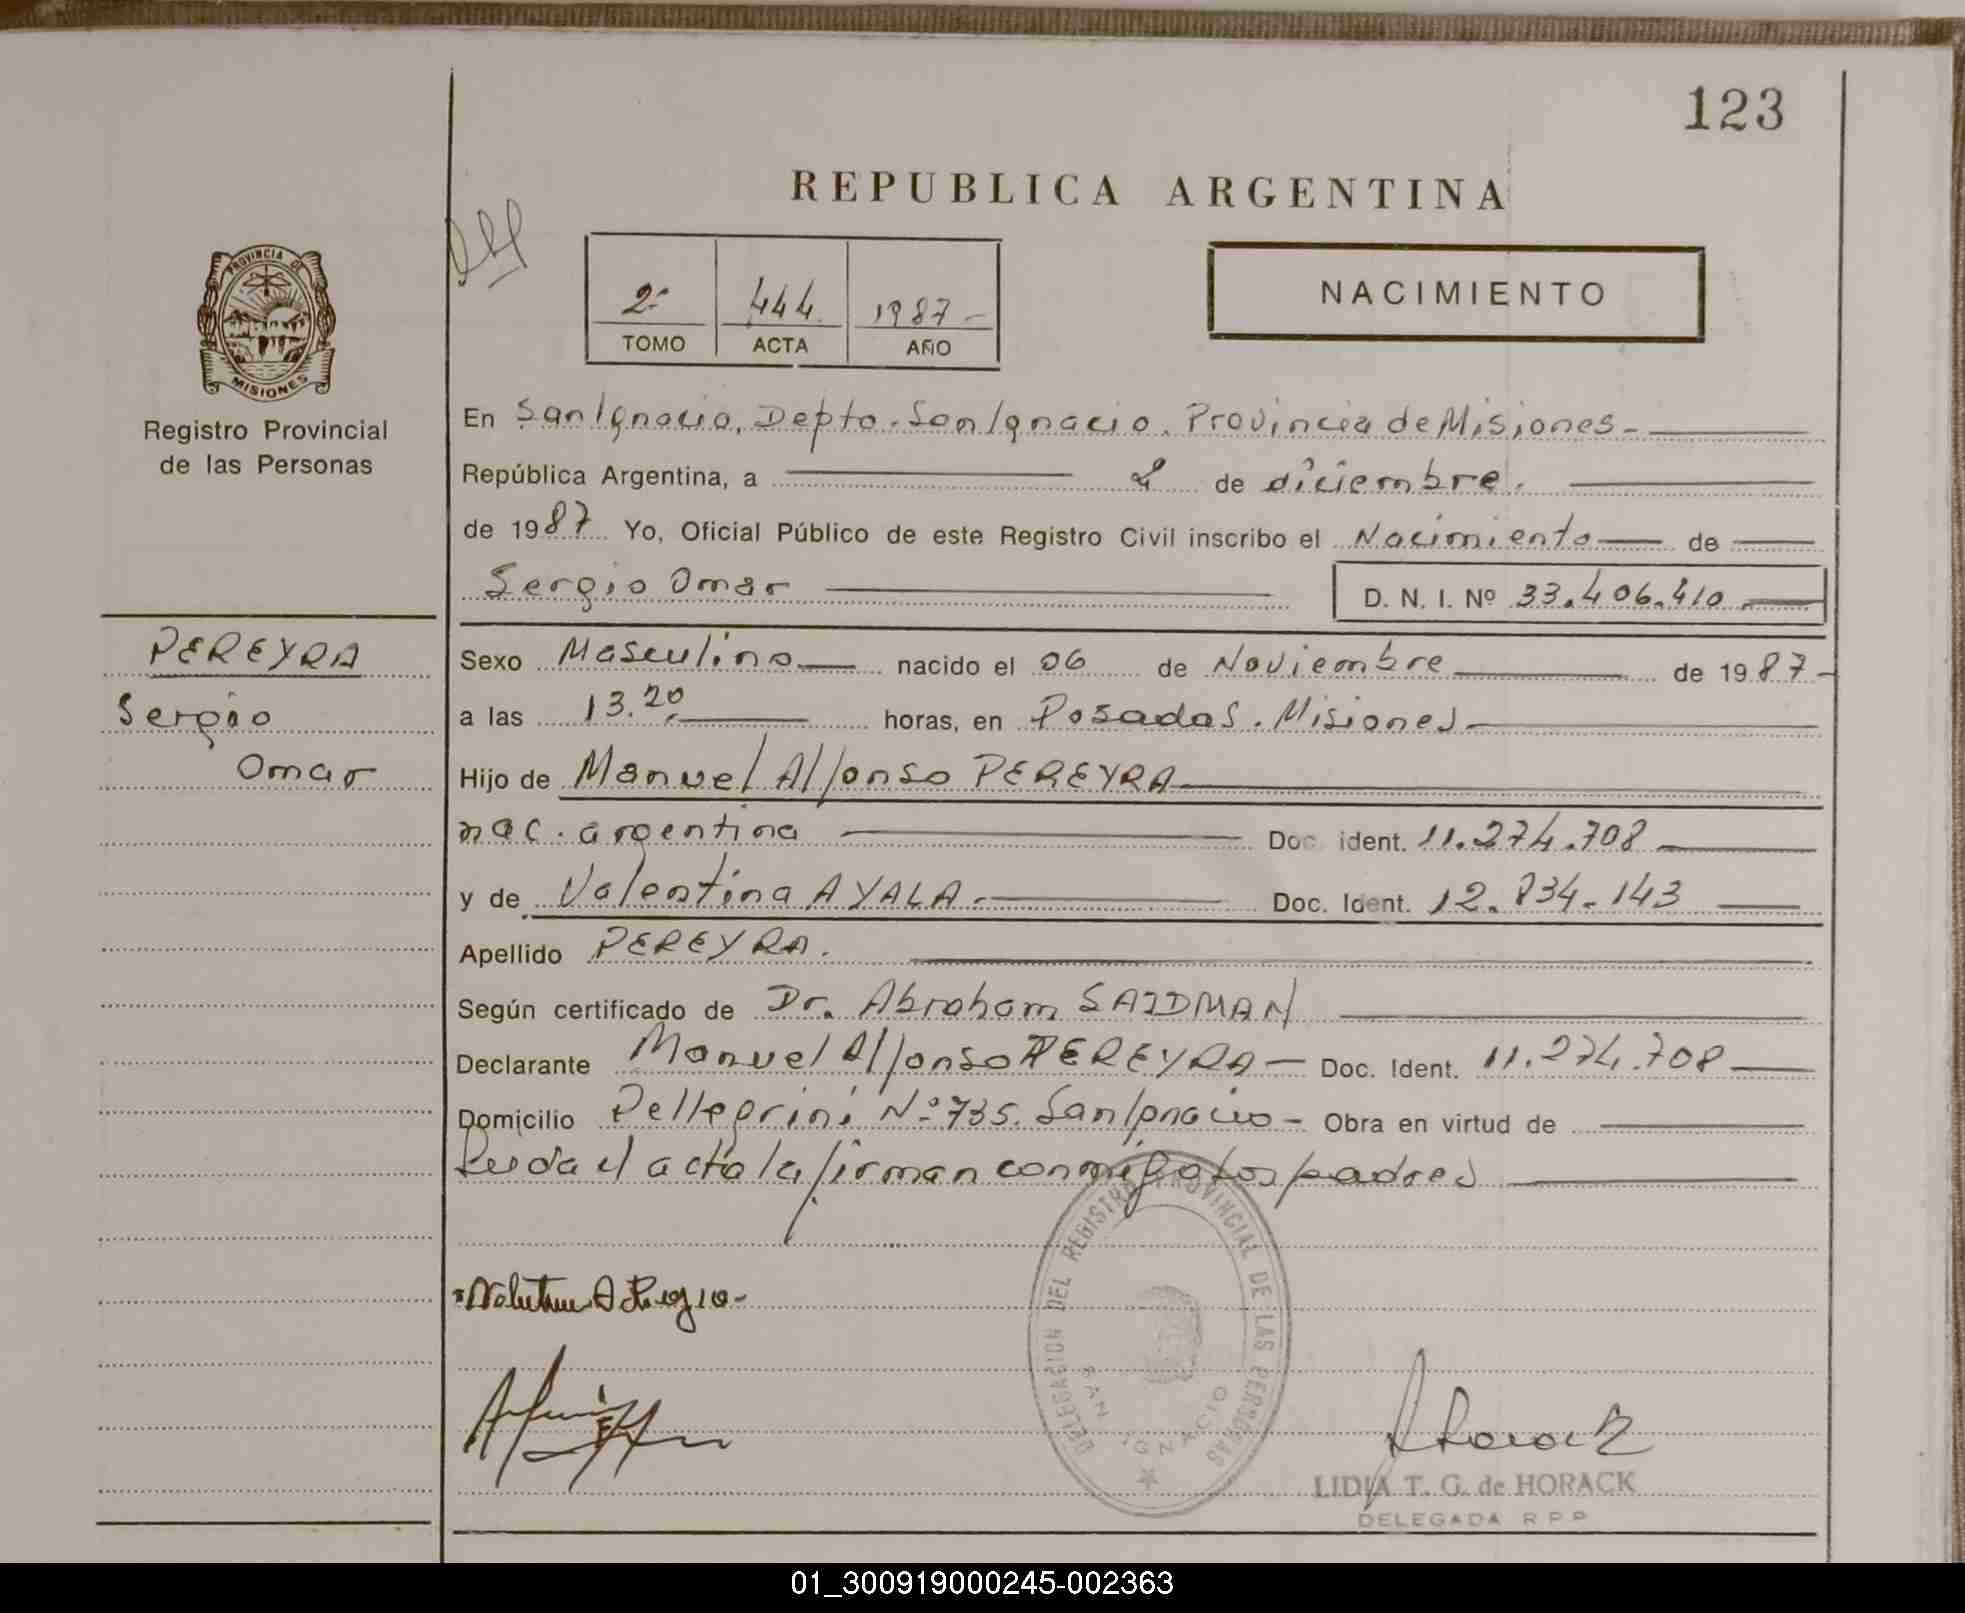 123
REPUBLICA ARGENTINA
PROVINCIA DE
MISIONES
Registro Provincial
de las Personas
2º 444 1987
TOMO ACTA AÑO
NACIMIENTO
En San Ignacio, Depto. San Ignacio. Provincia de Misiones
República Argentina, a 2 de diciembre.
de 1987 Yo, Oficial Público de este Registro Civil inscribo el Nacimiento de
Sergio Omar D. N. I. Nº 33.406.410
PEREYRA
Sergio
Omar
Sexo Masculino nacido el 06 de Noviembre de 1987
a las 13.20 horas, en Posadas. Misiones
Hijo de Manuel Alfonso PEREYRA
nac. argentina Doc. ident. 11.274.708
y de Valentina AYALA Doc. Ident. 12.834.143
Apellido PEREYRA.
Según certificado de Dr. Abraham SAIDMAN
Declarante Manuel Alfonso PEREYRA Doc. Ident. 11.274.708
Domicilio Pellegrini Nº 735. San Ignacio Obra en virtud de
Leida el acta la firman conmigo los padres
DELEGACION DEL REGISTRO PROVINCIAL DE LAS PERSONAS
SAN IGNACIO
LIDIA T. G. de HORACK
DELEGADA R P P
01_300919000245-002363